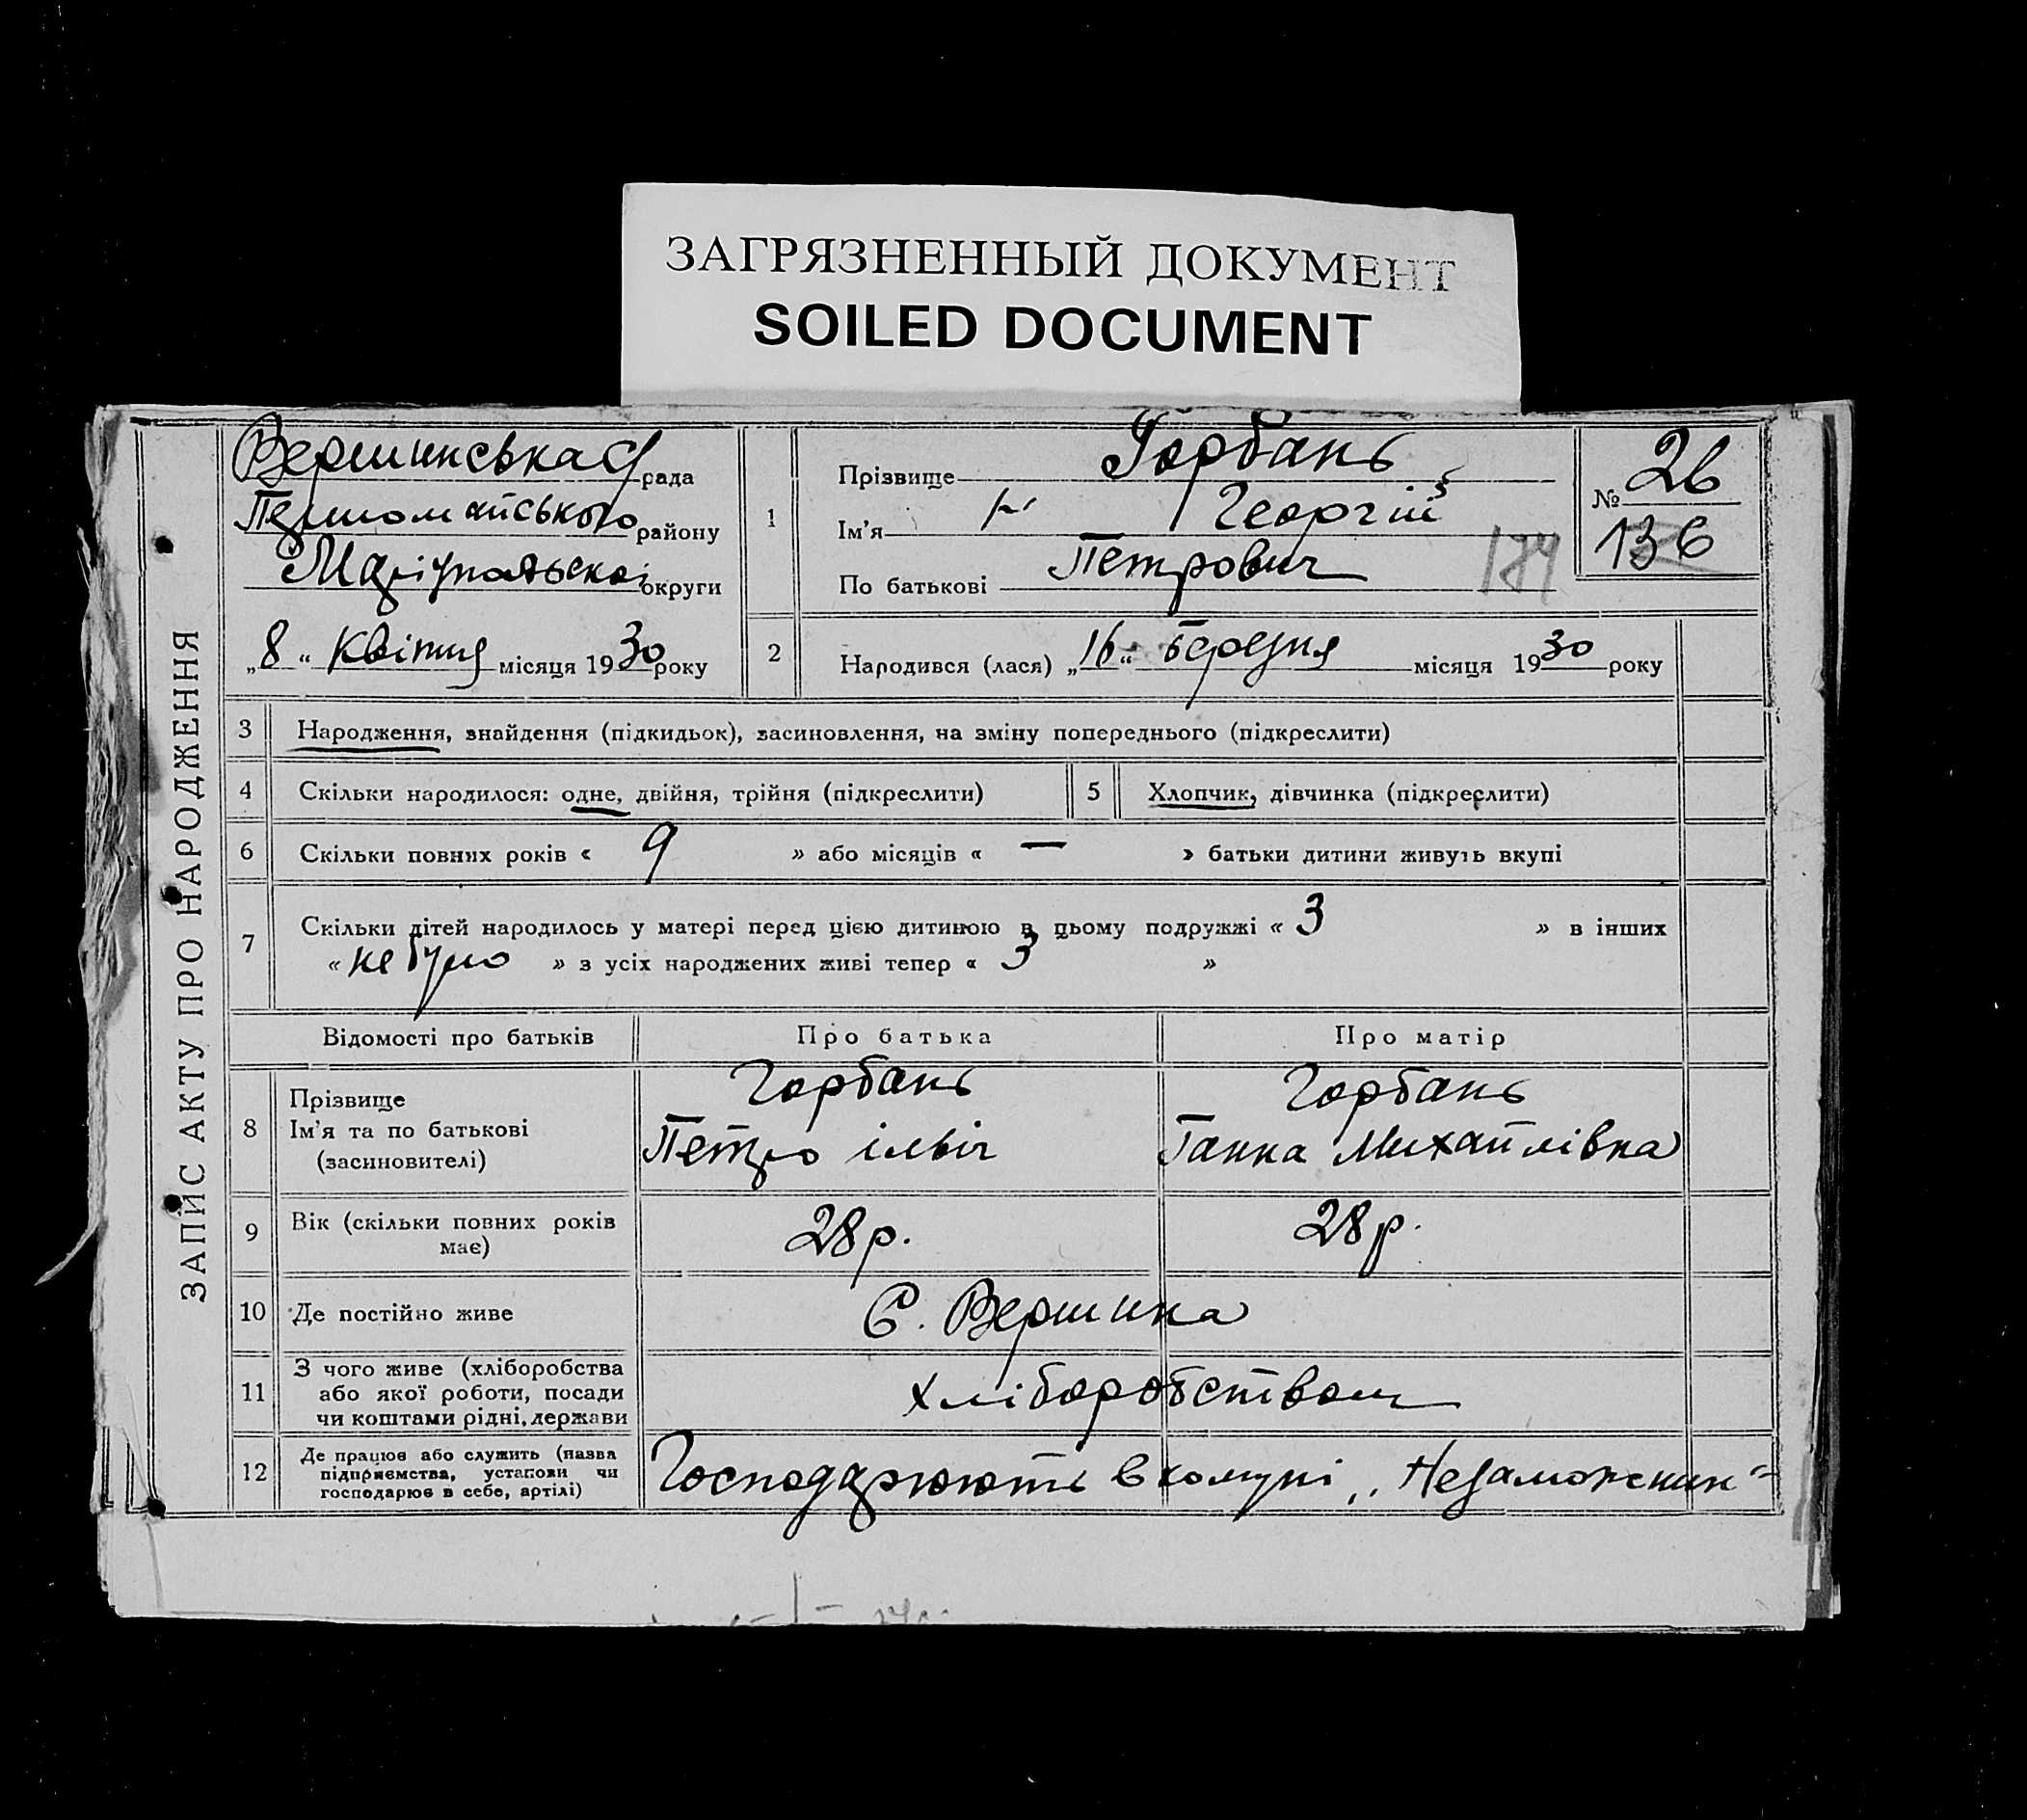 ЗАГРЯЗНЕННЫЙ ДОКУМЕНТ
SOILED DOCUMENT
ЗАПИС АКТУ ПРО НАРОДЖЕННЯ
Вершинська С/рада
Першомайського району
Маріупольскоі округи
„8“ квітня місяця 1930 року
1
Прізвище Горбань
Ім'я Георгій
По батькові Петрович
174
№ 26
136
2 Народився (лася) „16“ березня місяця 1930 року
3 Народження, знайдення (підкидьок), засиновлення, на зміну попереднього (підкреслити)
4 Скільки народилося: одне, двійня, трійня (підкреслити) 5 Хлопчик, дівчинка (підкреслити)
6 Скільки повних років « 9 » або місяців « — » батьки дитини живуть вкупі
7 Скільки дітей народилось у матері перед цією дитиною в цьому подружжі « 3 » в інших
« не було » з усіх народжених живі тепер « 3 »
Відомості про батьків Про батька Про матір
8 Прізвище Горбань Горбань
Ім'я та по батькові Петро ільіч Ганна Михайлівна
(засиновителі)
9 Вік (скільки повних років має) 28 р. 28 р.
10 Де постійно живе С. Вершина
11 З чого живе (хліборобства
або якої роботи, посади
чи коштами рідні, держави
хліборобством
12 Де працює або служить (назва
підприємства, установи чи
господарює в себе, артілі)
Господарюють в комуні „Незаможник“